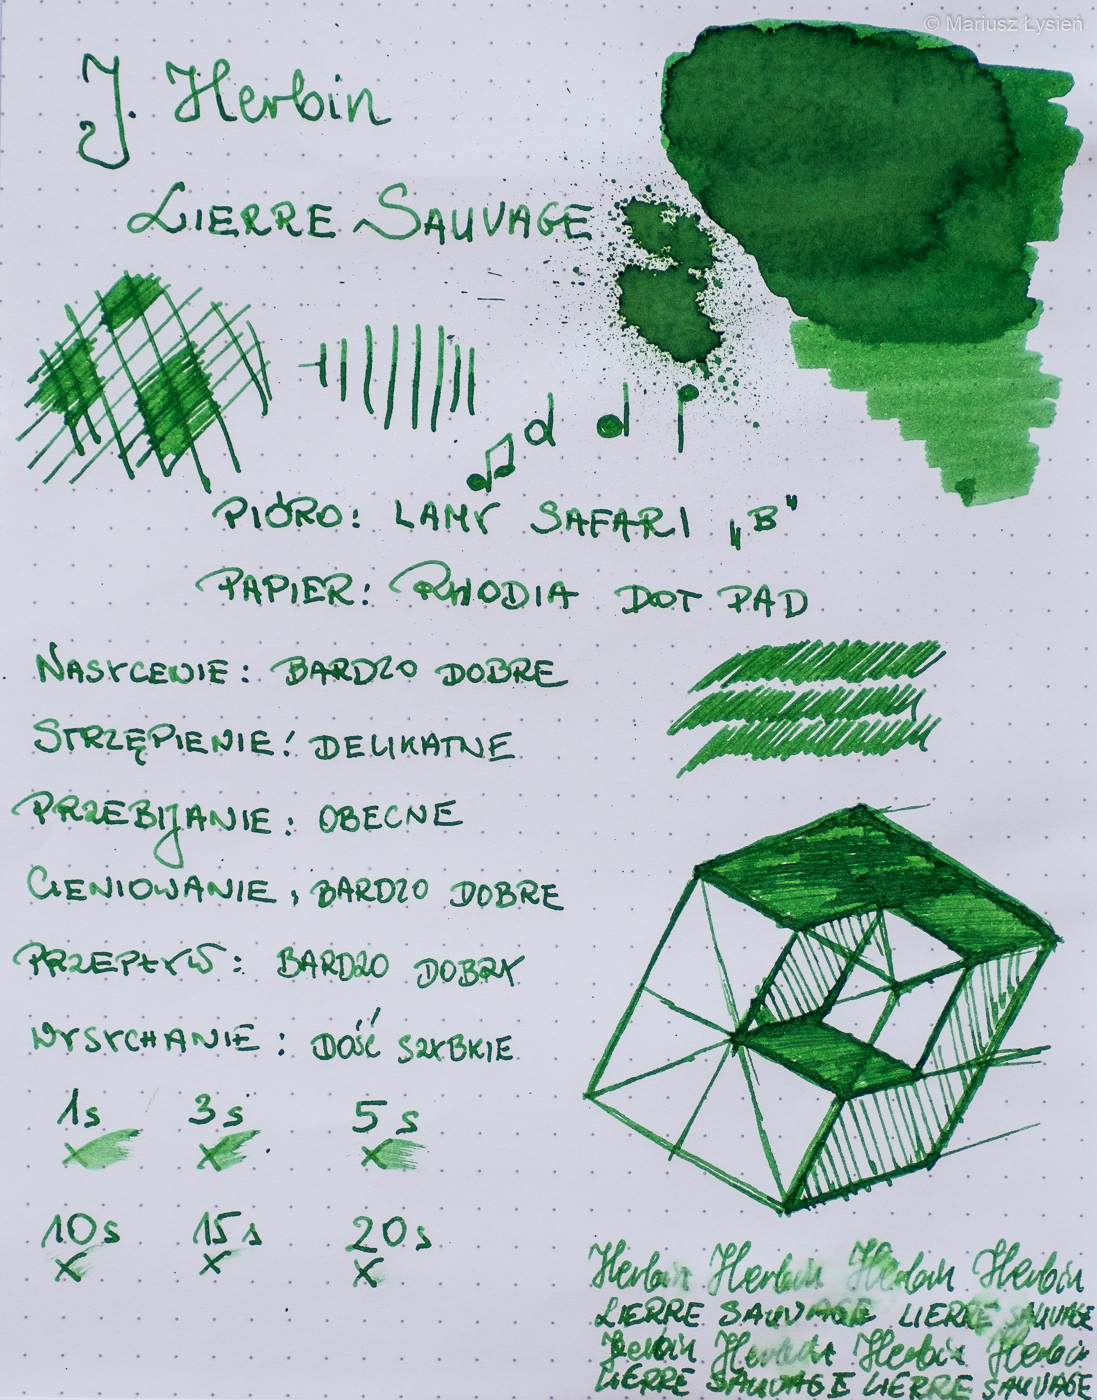 © Mariusz Łysień
J. Herbin
LIERRE SAUVAGE
PIÓRO: LAMY SAFARI „B"
PAPIER: RHODIA DOT PAD
NASYCENIE: BARDZO DOBRE
STRZĘPIENIE: DELIKATNE
PRZEBIJANIE: OBECNE
CIENIOWANIE, BARDZO DOBRE
PRZEPŁYW: BARDZO DOBRY
WYSYCHANIE: DOŚĆ SZYBKIE
1s 3s 5s
10s 15s 20s
Herbin Herbin Herbin Herbin
LIERRE SAUVAGE LIERRE SAUVAGE
Herbin Herbin Herbin Herbin
LIERRE SAUVAGE LIERRE SAUVAGE